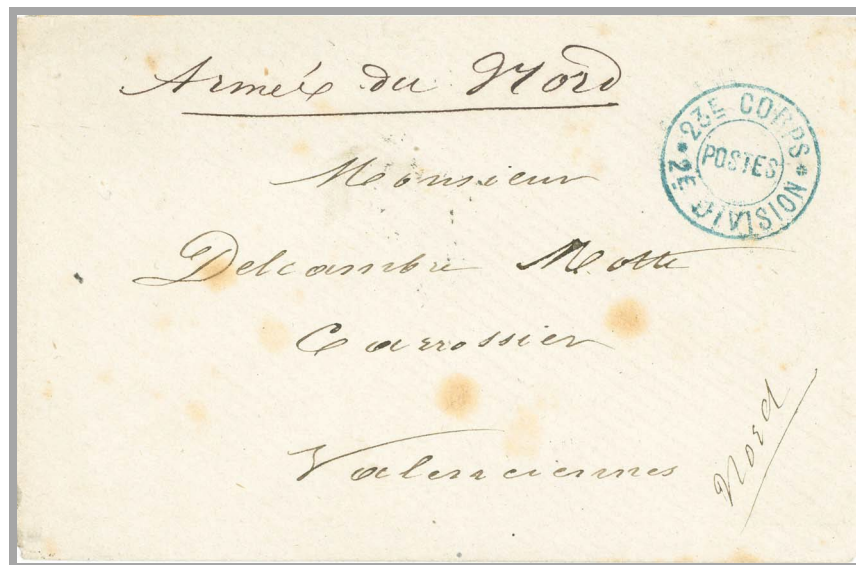 Armée du Nord
23E CORPS * 2E DIVISION *
POSTES
Monsieur
Delcambre Motte
Carrossier
Valenciennes
Nord